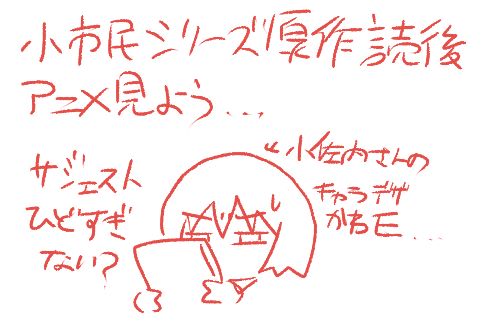 小市民シリーズ原作読後
アニメ見よう...
サジェスト
ひどすぎ
ない?
←小佐内さんの
キャラデザ
かちE...